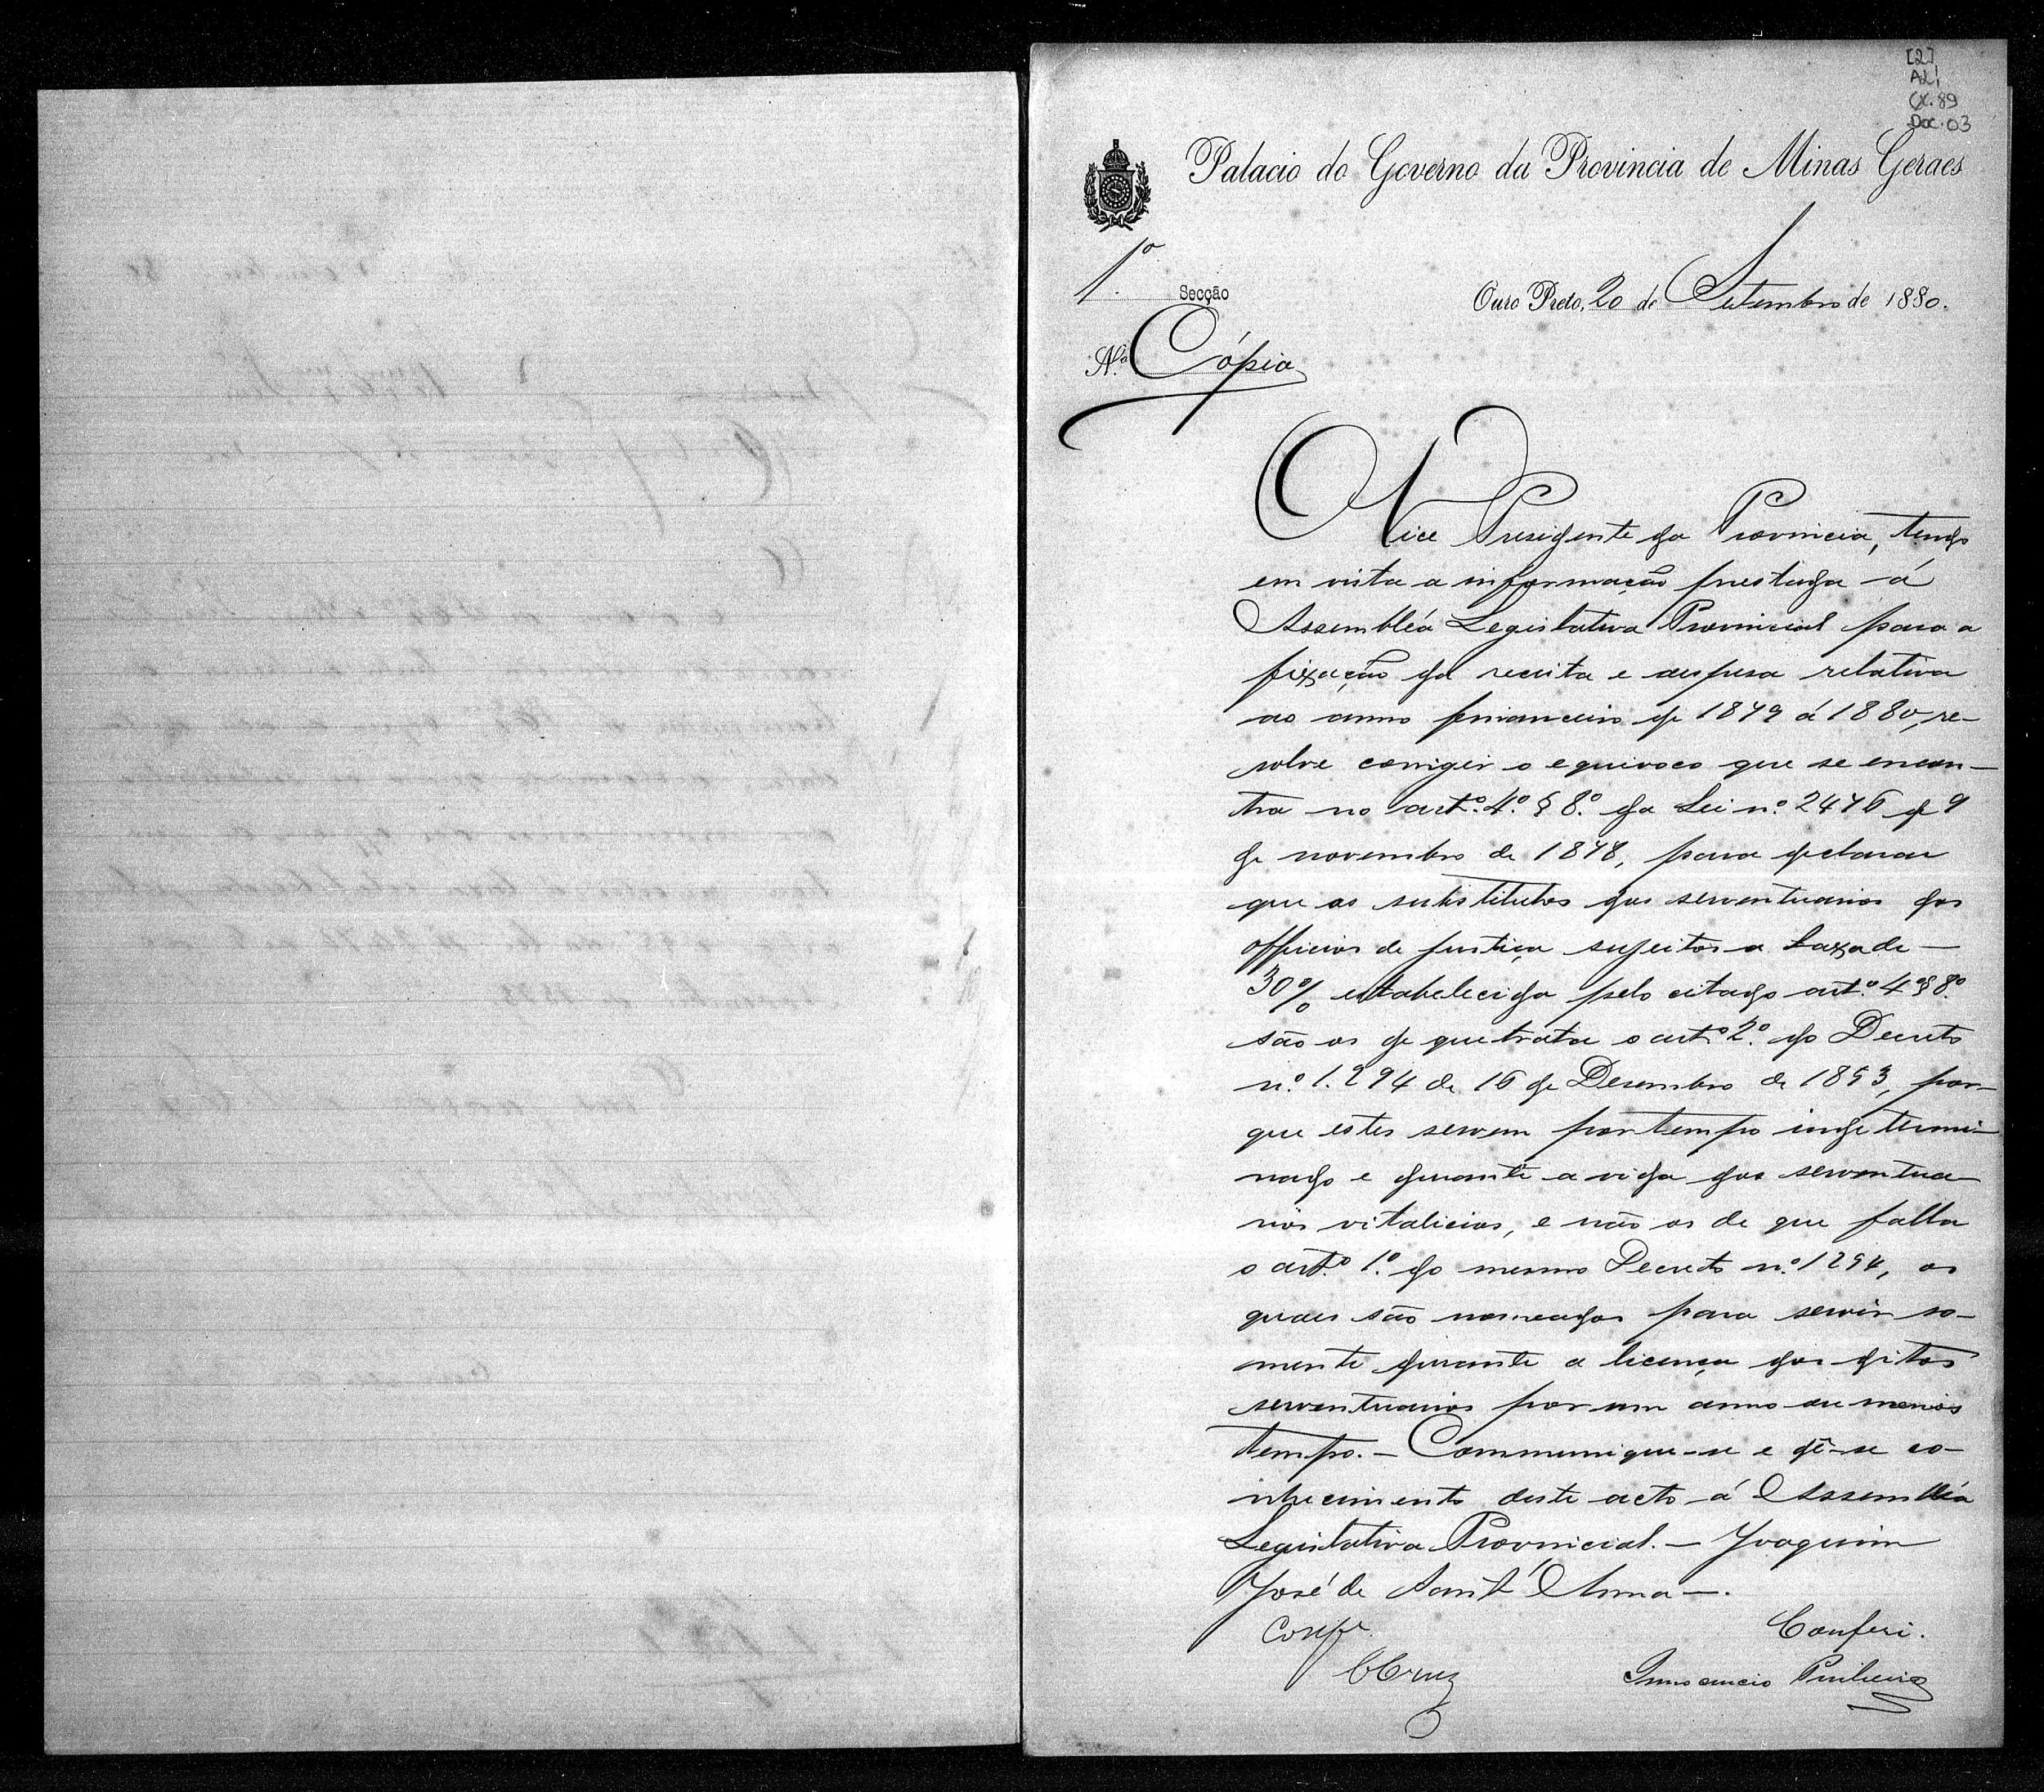 [2]
AL1
CX. 89
Doc. 03
Palacio do Governo da Provincia de Minas Geraes
1ª Secção
Ouro Preto, 20 de Setembro de 1880.
Nº Cópia
O Vice Presidente da Provincia, tendo
em vista a informação prestada á
Assembléa Legislativa Provincial para a
fixação da receita e despesa relativa
ao anno financeiro de 1879 á 1880, re-
solve corrigir o equivoco que se encon-
tra no artº. 4º. § 8º. da Lei nº. 2476 de 9
de novembro de 1878, para declarar
que os substitutos dos serventuarios dos
officios de justiça sujeitos a taxa de
30% estabelecida pelo citado artº. 4º § 8º.
são os de que trata o artº 2º. do Decreto
nº. 1.294 de 16 de Desembro de 1853, por-
que estes servem por tempo indetermi-
nado e durante a vida dos serventua-
rios vitalicios, e não os de que falla
o artº. 1º. do mesmo Decreto nº. 1294, os
quaes são nomeados para servir so-
mente durante a licença dos ditos
serventuarios por um anno ou menos
tempo. — Communique-se e dê-se co-
nhecimento deste acto á Assembléa
Legislativa Provincial. — Joaquim
José de Sant'Anna —.
Confe. Conferi.
Cruz Innocencio Pinheiro